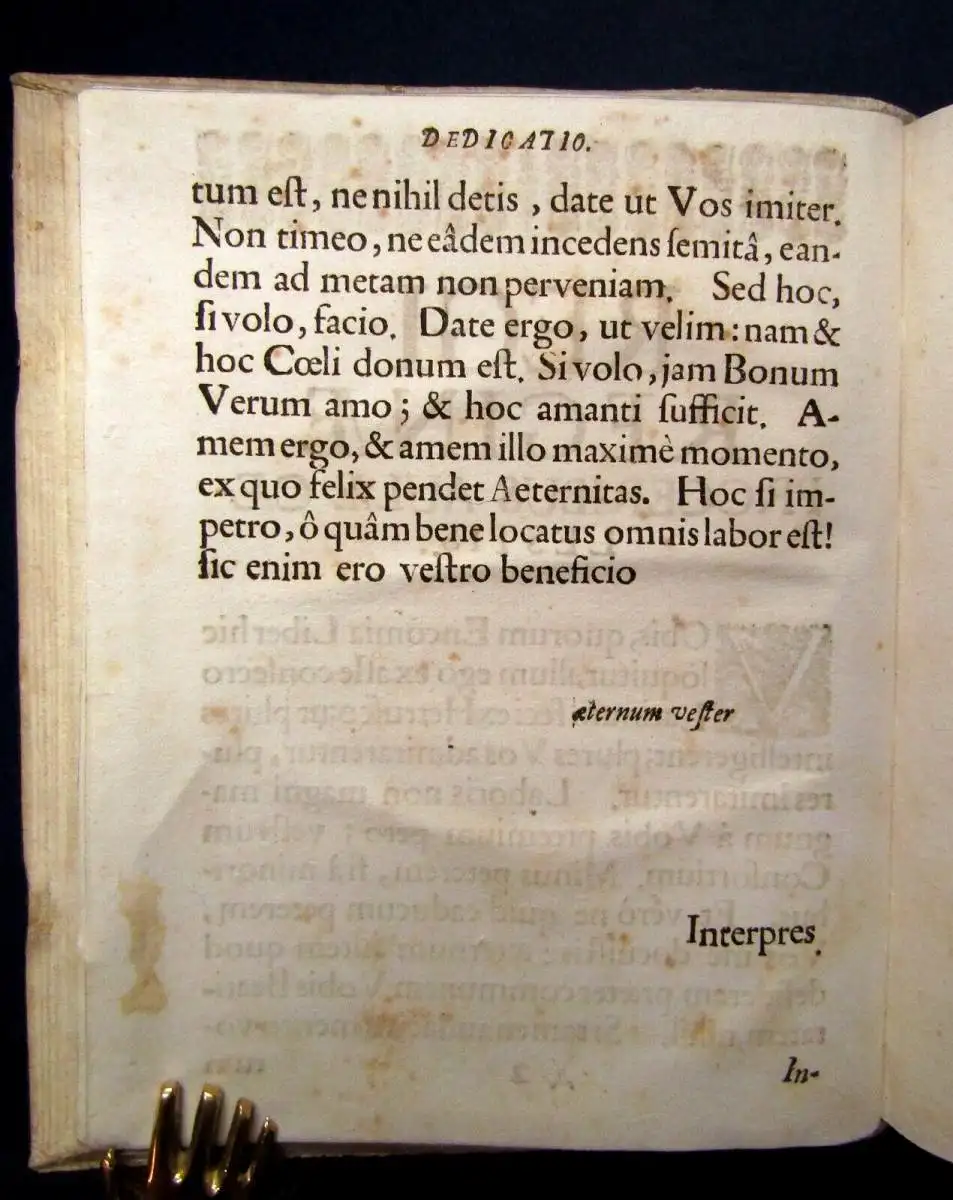 DEDICATIO.
tum eſt, ne nihil detis, date ut Vos imiter.
Non timeo, ne eâdem incedens ſemitâ, ean-
dem ad metam non perveniam. Sed hoc,
ſi volo, facio. Date ergo, ut velim: nam &
hoc Cœli donum eſt. Si volo, jam Bonum
Verum amo; & hoc amanti ſufficit. A-
mem ergo, & amem illo maximè momento,
ex quo felix pendet Aeternitas. Hoc ſi im-
petro, ô quâm bene locatus omnis labor eſt!
ſic enim ero veſtro beneficio
æternum veſter
Interpres.
In-